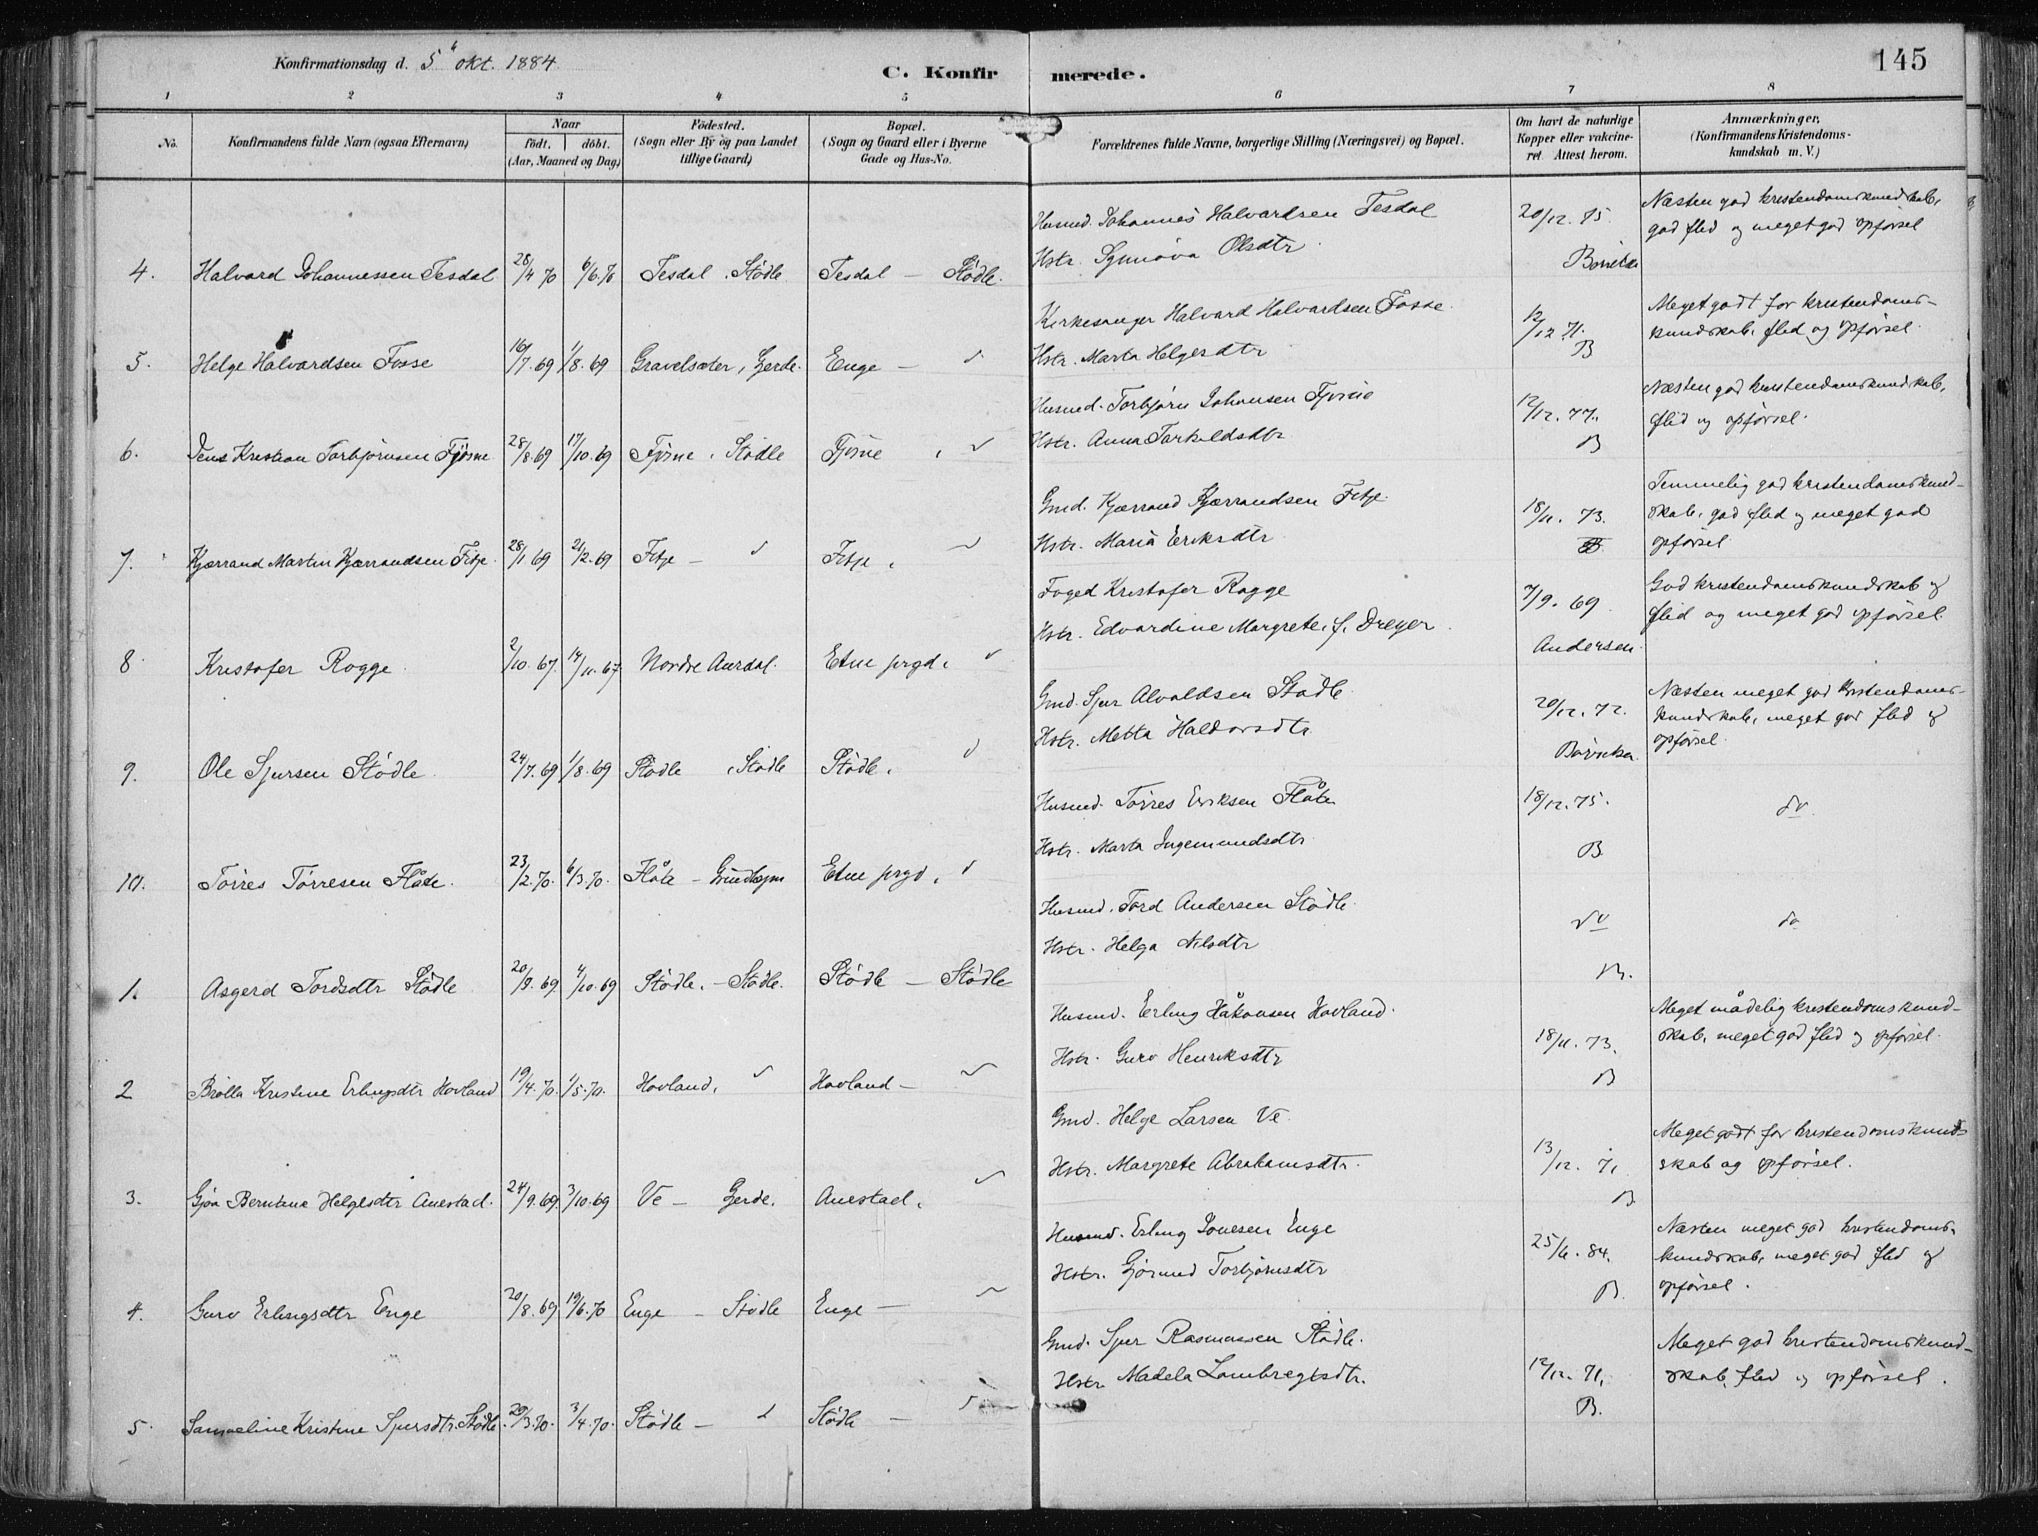 Konfirmationsdag d. 5 okt. 1884
C. Konfirmerede.
145
1 2 3 4 5 6 7 8
No.
Konfirmandens fulde Navn (ogsaa Efternavn)
Naar
født. døbt.
(Aar, Maaned og Dag)
Födested.
(Sogn eller By og paa Landet
tillige Gaard)
Bopæl.
(Sogn og Gaard eller i Byerne
Gade og Hus-No.
Forældrenes fulde Navne, borgerlige Stilling (Næringsvei) og Bopæl.
Om havt de naturlige
Kopper eller vakcine-
ret Attest herom.
Anmærkninger,
(Konfirmandens Kristendoms-
kundskab m. V.)
4. Halvard Johannessen Tesdal 28/4 70 6/6.70 Tesdal, Stödle Tesdal — Stödle.
Husmd. Johannes Halvardsen Tesdal
Hstr. Synnöva Olsdtr.
20/12. 75.
Næsten god kristendomskundskab,
god flid og meget god opförsel
5. Helge Halvardsen Fosse 16/7 69 1/8.69 Gravelsæter, Gerde. Enge —
Kirkesanger Halvard Halvardsen Fosse.
Hstr. Marta Helgesdtr
12/12 71.
B
Meget godt for kristendoms-
kundskab, flid og opförsel.
6. Jens Kristian Torbjörnsen Fjösne 28/8.69 17/10.69 Fjösne, Stödle Fjösne,
Husmd. Torbjörn Johansen Fjösne
Hstr. Anna Torkildsdtr
12/12. 77.
B
Næsten god kristendomskundskab,
flid og opförsel.
7. Kjærrand Martin Kjærrandsen Fitje. 28/1 69 21/2.69 Fitje — Fitje,
Gmd. Kjærrand Kjærrandsen Fitje.
Hstr. Maria Eriksdtr
18/11. 73.
B
Temmelig god kristendomskund-
skab, god flid og meget god
opförsel
8. Kristofer Rogge. 2/10. 67. 14/11. 67. Nordre Aurdal. Etne prgd,
Foged Kristofer Rogge
Hstr. Edvardine Margrete, f. Dreyer.
7/9. 69.
Andersen.
God kristendomskundskab og
flid og meget god opförsel.
9. Ole Sjursen Stödle. 24/7.69 1/8.69 Stödle, Stödle Stödle,
Gmd. Sjur Alvaldsen Stödle.
Hstr. Metta Haldorsdtr
20/12. 72.
Næsten meget god kristendoms-
kundskab, meget god flid og
opförsel.
10. Törres Törresen Flåte. 23/2.70. 6/3.70. Flåte — Grindhejm Etne prgd,
Husmd. Törres Eriksen Flåte
Hstr. Marta Ingemundsdtr
18/12. 75.
B
do
1. Asgerd Tordsdtr Stödle 20/8.69. 4/10.69 Stödle, — Stödle. Stödle — Stödle
Husmd. Tord Andersen Stödle.
Hstr. Helga Nilsdtr
do
B.
do
2 Brölla Kristine Erlingsdtr Hovland 19/4.70. 1/5.70. Hovland, Hovland —
Husmd. Erling Håkonsen Hovland.
Hstr. Guro Henriksdtr
18/11. 73.
B
Meget mådelig kristendomskund-
skab, meget god flid og opförsel.
3. Gjöa Berntine Helgesdtr Auestad. 24/9.69. 3/10.69 Ve — Gerde. Auestad,
Gmd. Helge Larsen Ve.
Hstr. Margrete Abrahamsdtr.
13/12. 71
B
Meget godt for kristendomskund-
skab og opförsel.
4. Guro Erlingsdtr Enge 20/8.69 19/6.70 Enge — Stödle Enge —
Husmd. Erling Jonesen Enge
Hstr. Gjörund Torbjörnsdtr
25/6. 84.
B.
Næsten meget god kristendoms-
kundskab, meget god flid og
opförsel.
5. Samueline Kristine Sjursdtr. Stödle. 20/3.70. 3/4.70. Stödle — Stödle —
Gmd. Sjur Rasmussen Stödle.
Hstr Madela Lambregtsdtr.
12/12. 71.
B.
Meget god kristendomskund-
skab, flid og opförsel.